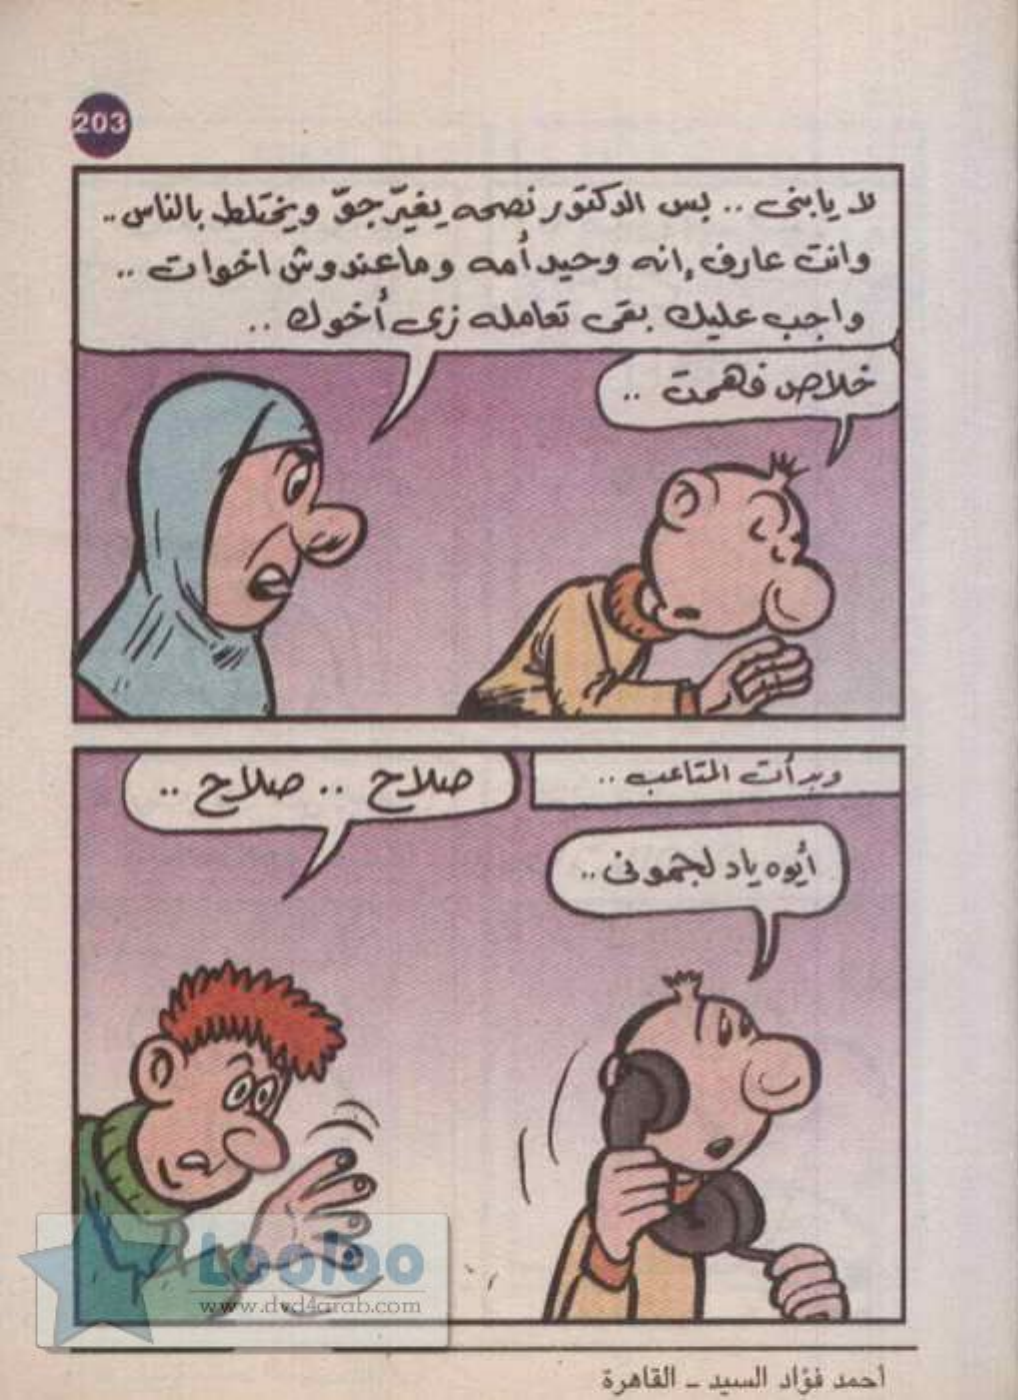 203
لا يابنى .. بس الدكتور نصحه يغيّر جوّ ويختلط بالناس ..
وانت عارف إنه وحيد أمه وماعندوش اخوات ..
واجب عليك بقى تعامله زى أخوك ..
خلاص فهمت ..
وبدأت المتاعب ..
أيوه ياد لجمونى ..
صلاح .. صلاح ..
Looloo
www.dvd4arab.com
أحمد فؤاد السيد ـ القاهرة